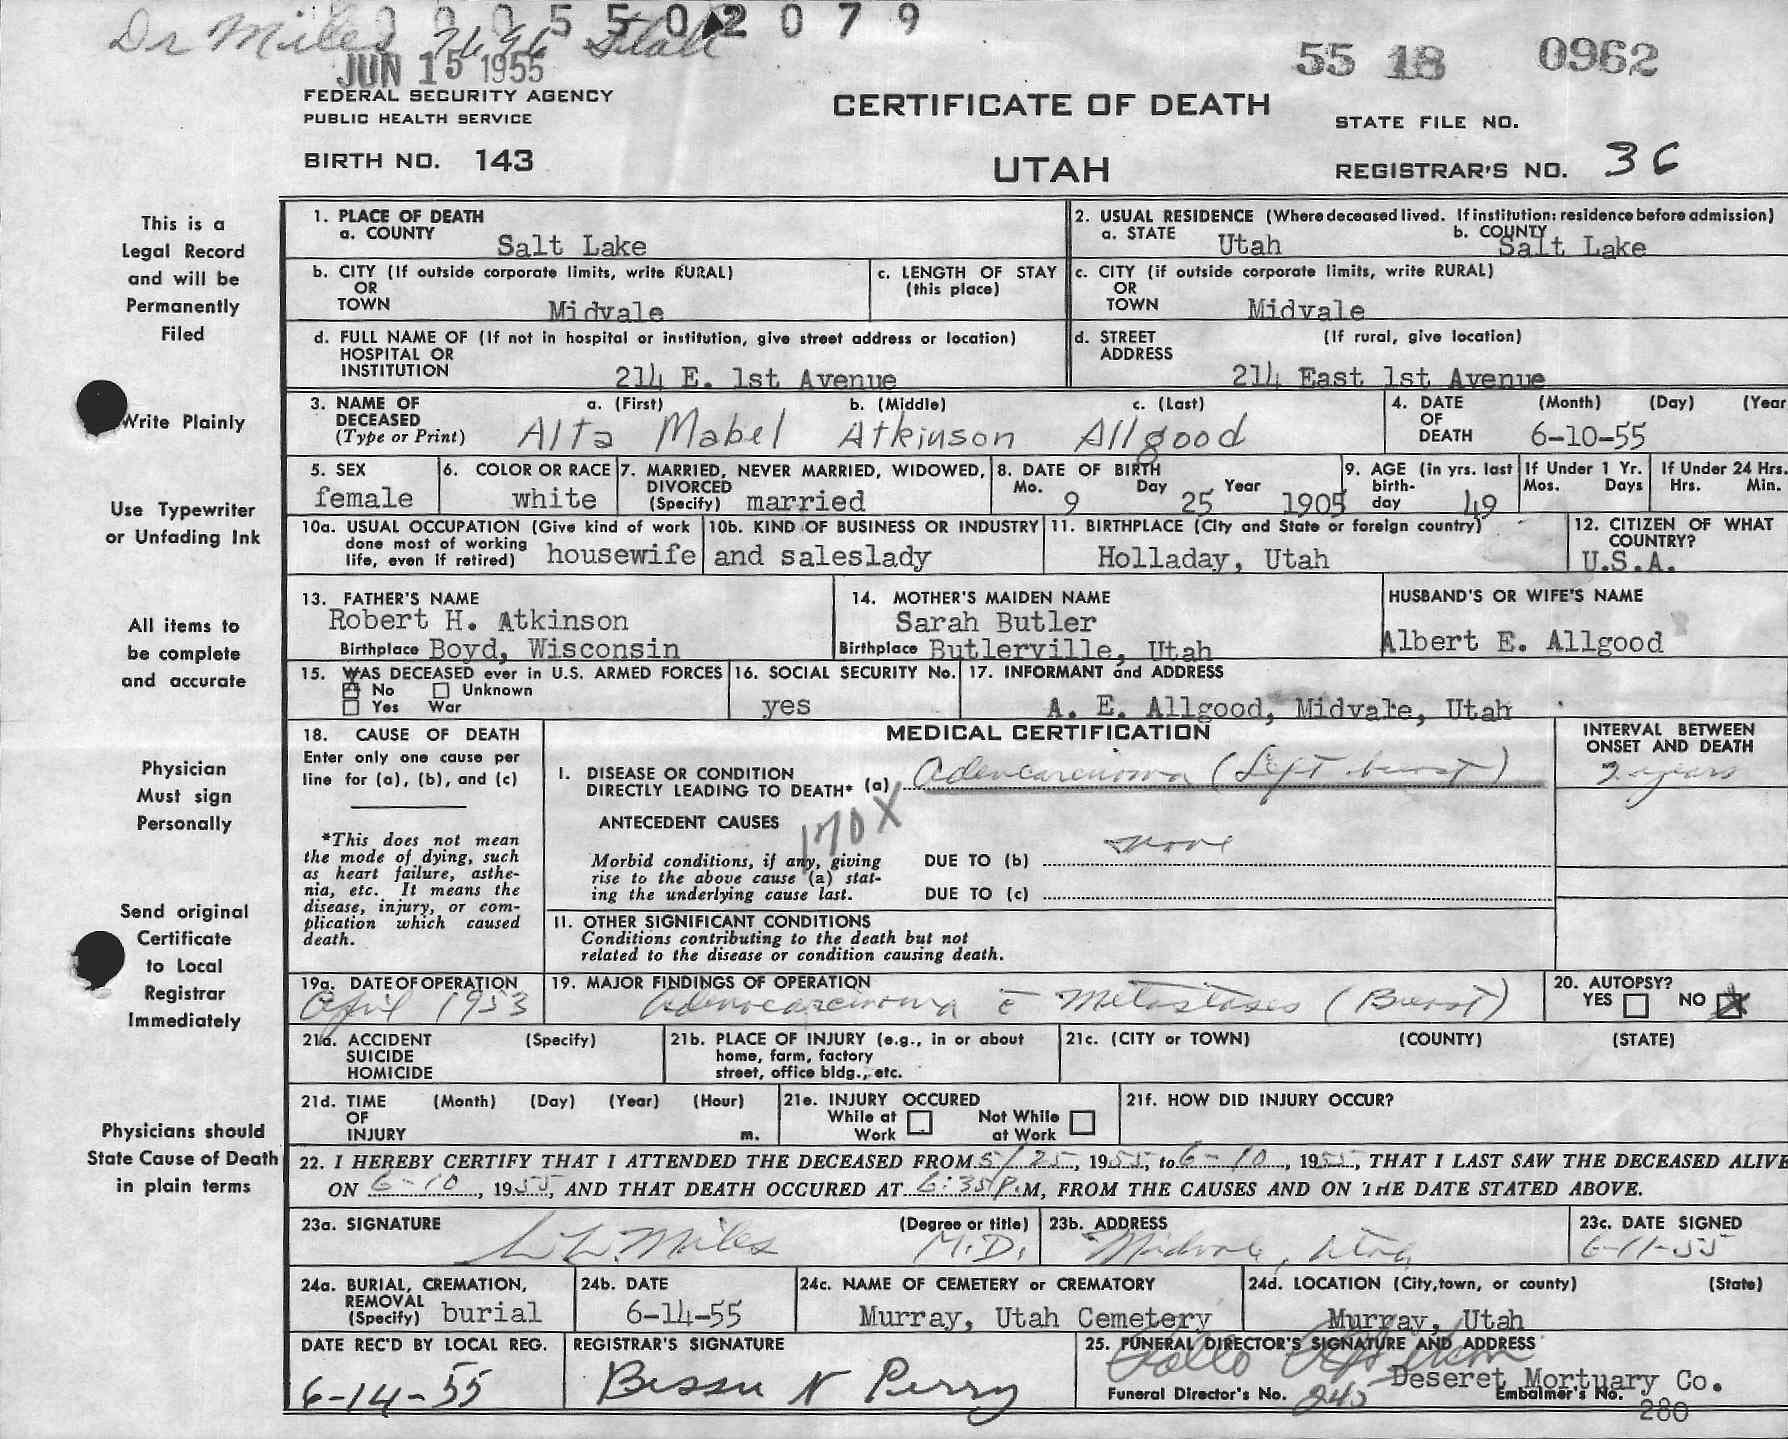 Dr Miles Utah
0 0 0 5 5 0 2 0 7 9
JUN 15 1955
55 18 0962
FEDERAL SECURITY AGENCY
PUBLIC HEALTH SERVICE
CERTIFICATE OF DEATH
STATE FILE NO.
BIRTH NO. 143
UTAH
REGISTRAR'S NO. 36
This is a
Legal Record
and will be
Permanently
Filed
Write Plainly
Use Typewriter
or Unfading Ink
All items to
be complete
and accurate
Physician
Must sign
Personally
Send original
Certificate
to Local
Registrar
Immediately
Physicians should
State Cause of Death
in plain terms
1. PLACE OF DEATH
a. COUNTY Salt Lake
2. USUAL RESIDENCE (Where deceased lived. If institution: residence before admission)
a. STATE Utah b. COUNTY Salt Lake
b. CITY (If outside corporate limits, write RURAL)
OR
TOWN Midvale
c. LENGTH OF STAY
(this place)
c. CITY (if outside corporate limits, write RURAL)
OR
TOWN Midvale
d. FULL NAME OF (If not in hospital or institution, give street address or location)
HOSPITAL OR
INSTITUTION 214 E. 1st Avenue
d. STREET (If rural, give location)
ADDRESS
214 East 1st Avenue
3. NAME OF a. (First) b. (Middle) c. (Last)
DECEASED
(Type or Print) Alta Mabel Atkinson Allgood
4. DATE (Month) (Day) (Year
OF
DEATH 6-10-55
5. SEX
female
6. COLOR OR RACE
white
7. MARRIED, NEVER MARRIED, WIDOWED,
DIVORCED
(Specify) married
8. DATE OF BIRTH
Mo. Day Year
9 25 1905
9. AGE (in yrs. last
birth-
day 49
If Under 1 Yr.
Mos. Days
If Under 24 Hrs.
Hrs. Min.
10a. USUAL OCCUPATION (Give kind of work
done most of working
life, even if retired) housewife
10b. KIND OF BUSINESS OR INDUSTRY
and saleslady
11. BIRTHPLACE (City and State or foreign country)
Holladay, Utah
12. CITIZEN OF WHAT
COUNTRY?
U.S.A.
13. FATHER'S NAME
Robert H. Atkinson
Birthplace Boyd, Wisconsin
14. MOTHER'S MAIDEN NAME
Sarah Butler
Birthplace Butlerville, Utah
HUSBAND'S OR WIFE'S NAME
Albert E. Allgood
15. WAS DECEASED ever in U.S. ARMED FORCES
No Unknown
Yes War
16. SOCIAL SECURITY No.
yes
17. INFORMANT and ADDRESS
A. E. Allgood, Midvale, Utah
18. CAUSE OF DEATH
Enter only one cause per
line for (a), (b), and (c)
*This does not mean
the mode of dying, such
as heart failure, asthe-
nia, etc. It means the
disease, injury, or com-
plication which caused
death.
MEDICAL CERTIFICATION
INTERVAL BETWEEN
ONSET AND DEATH
I. DISEASE OR CONDITION
DIRECTLY LEADING TO DEATH* (a) Adenocarcinoma (Left breast) 2 years
170X
ANTECEDENT CAUSES
Morbid conditions, if any, giving
rise to the above cause (a) stat-
ing the underlying cause last.
DUE TO (b) none
DUE TO (c)
II. OTHER SIGNIFICANT CONDITIONS
Conditions contributing to the death but not
related to the disease or condition causing death.
19a. DATE OF OPERATION
April 1953
19. MAJOR FINDINGS OF OPERATION
Adenocarcinoma c̄ Metastases (Breast)
20. AUTOPSY?
YES NO X
21a. ACCIDENT (Specify)
SUICIDE
HOMICIDE
21b. PLACE OF INJURY (e.g., in or about
home, farm, factory
street, office bldg., etc.
21c. (CITY or TOWN) (COUNTY) (STATE)
21d. TIME (Month) (Day) (Year) (Hour)
OF
INJURY m.
21e. INJURY OCCURED
While at Not While
Work at Work
21f. HOW DID INJURY OCCUR?
22. I HEREBY CERTIFY THAT I ATTENDED THE DECEASED FROM 5/25, 1955, to 6-10, 1955, THAT I LAST SAW THE DECEASED ALIVE
ON 6-10, 1955, AND THAT DEATH OCCURED AT 6:35 P.M, FROM THE CAUSES AND ON THE DATE STATED ABOVE.
23a. SIGNATURE (Degree or title)
Miles M.D.
23b. ADDRESS
Midvale, Utah
23c. DATE SIGNED
6-11-55
24a. BURIAL, CREMATION,
REMOVAL
(Specify) burial
24b. DATE
6-14-55
24c. NAME OF CEMETERY or CREMATORY
Murray, Utah Cemetery
24d. LOCATION (City, town, or county) (State)
Murray, Utah
DATE REC'D BY LOCAL REG.
6-14-55
REGISTRAR'S SIGNATURE
Bessie N Perry
25. FUNERAL DIRECTOR'S SIGNATURE AND ADDRESS
Deseret Mortuary Co.
Funeral Director's No. 245 Embalmer's No.
280